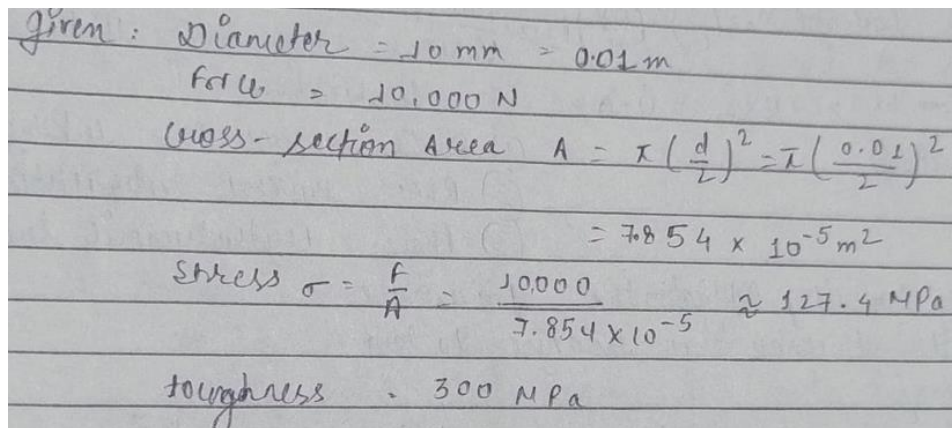 Given: Diameter = 10 mm = 0.01 m
Force = 10,000 N
Cross-section Area A = π(d/2)² = π(0.01/2)²
= 7.854 × 10⁻⁵ m²
Stress σ = F/A = 10,000/7.854 × 10⁻⁵ ≈ 127.4 MPa
toughness . 300 MPa